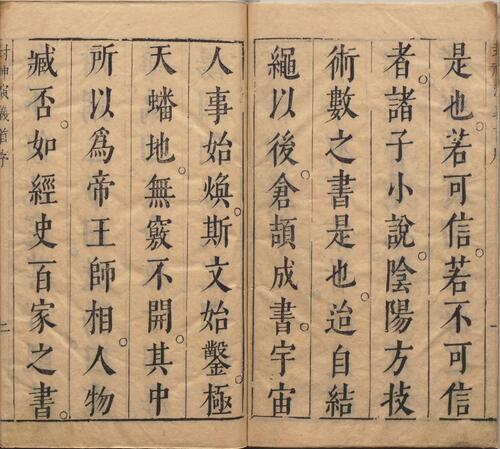 是也。若可信。若不可信
者。諸子小說。陰陽方技
術數之書是也。迨自結
繩以後。倉頡成書。宇宙
人事始煥。斯文始鑿。極
天蟠地。無竅不開。其中
所以為帝王師相。人物
臧否。如經史百家之書。
封神演義首序
二